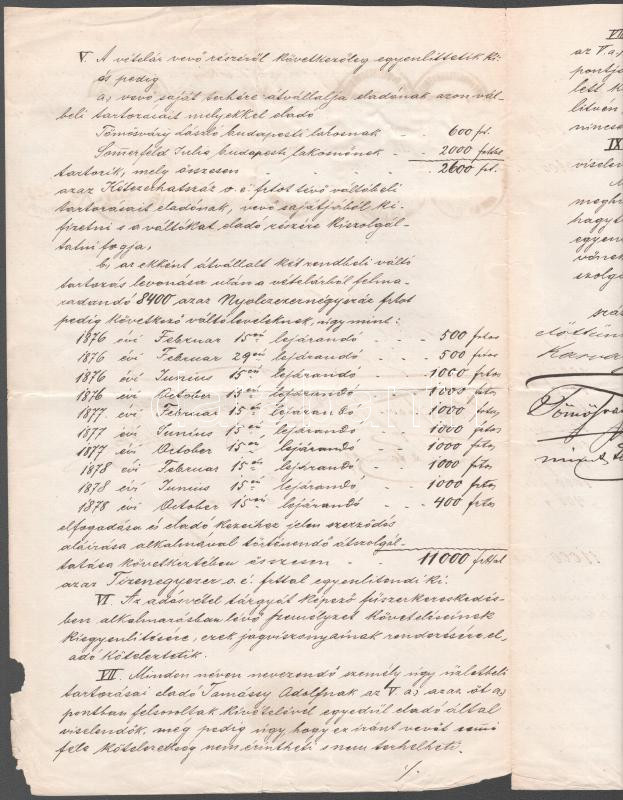 V. A vételár vevő részéről következőleg egyenlíttetik ki:
és pedig
a, vevő saját terhére átvállalja eladónak azon vált-
beli tartozásait melyekkel eladó
Tömösváry László budapesti lakosnak - - 600 frt.
Somerfeld Julia budapesti lakosnőnek - - 2000 frttal
tartozik, mely összesen - - - - 2600 frt.
azaz Kétezerhatszáz o. é. frtot tévő váltóbeli
tartozásait eladónak, vevő sajátjából ki-
fizetni s a váltókat eladó részére kiszolgál-
tatni fogja,
b, az ekként átvállalt két rendbeli váltó
tartozás levonása után a vételárból felma-
radandó 8400 azaz Nyolczezernégyszáz frtot
pedig következő váltóleveleknek, úgymint:
1876 évi Februar 15én lejárandó - - - 500 frtos
1876 évi Februar 29én lejárandó - - - 500 frtos
1876 évi Junius 15én lejárandó - - - 1000 frtos
1876 évi October 15én lejárandó - - - 1000 frtos
1877 évi Februar 15én lejárandó - - 1000 frtos
1877 évi Junius 15én lejárandó - - 1000 frtos
1877 évi October 15én lejárandó - - 1000 frtos
1878 évi Februar 15én lejárandó - - 1000 frtos
1878 évi Junius 15én lejárandó - - 1000 frtos
1878 évi October 15én lejárandó - - 400 frtos
elfogadása és eladó kezeihez jelen szerződés
aláírása alkalmával történendő átszolgál-
tatása következtében összesen - - 11000 frttal
azaz Tizenegyezer o. é. frttal egyenlítendi ki.
VI. Az adásvétel tárgyát képező fűszerkereskedés-
ben alkalmazásban lévő személyzet követeléseinek
kiegyenlítésére, ezek jogviszonyainak rendezésére el-
adó köteleztetik.
VII. Minden néven nevezendő személy úgy üzletbeli
tartozásai eladó Tamássy Adolfnak az V a, azaz öt a,
pontban felsoroltak kivételével egyedül eladó által
viselendők, még pedig úgy, hogy ez iránt vevőt semmi
féle kötelezettség nem érintheti s nem terhelheti.
./.
VII
az V. a,
pontja
lett k
nincse
IX
viselen
meghi
hagyt
egyen
vönek
szolga
szá
előttün